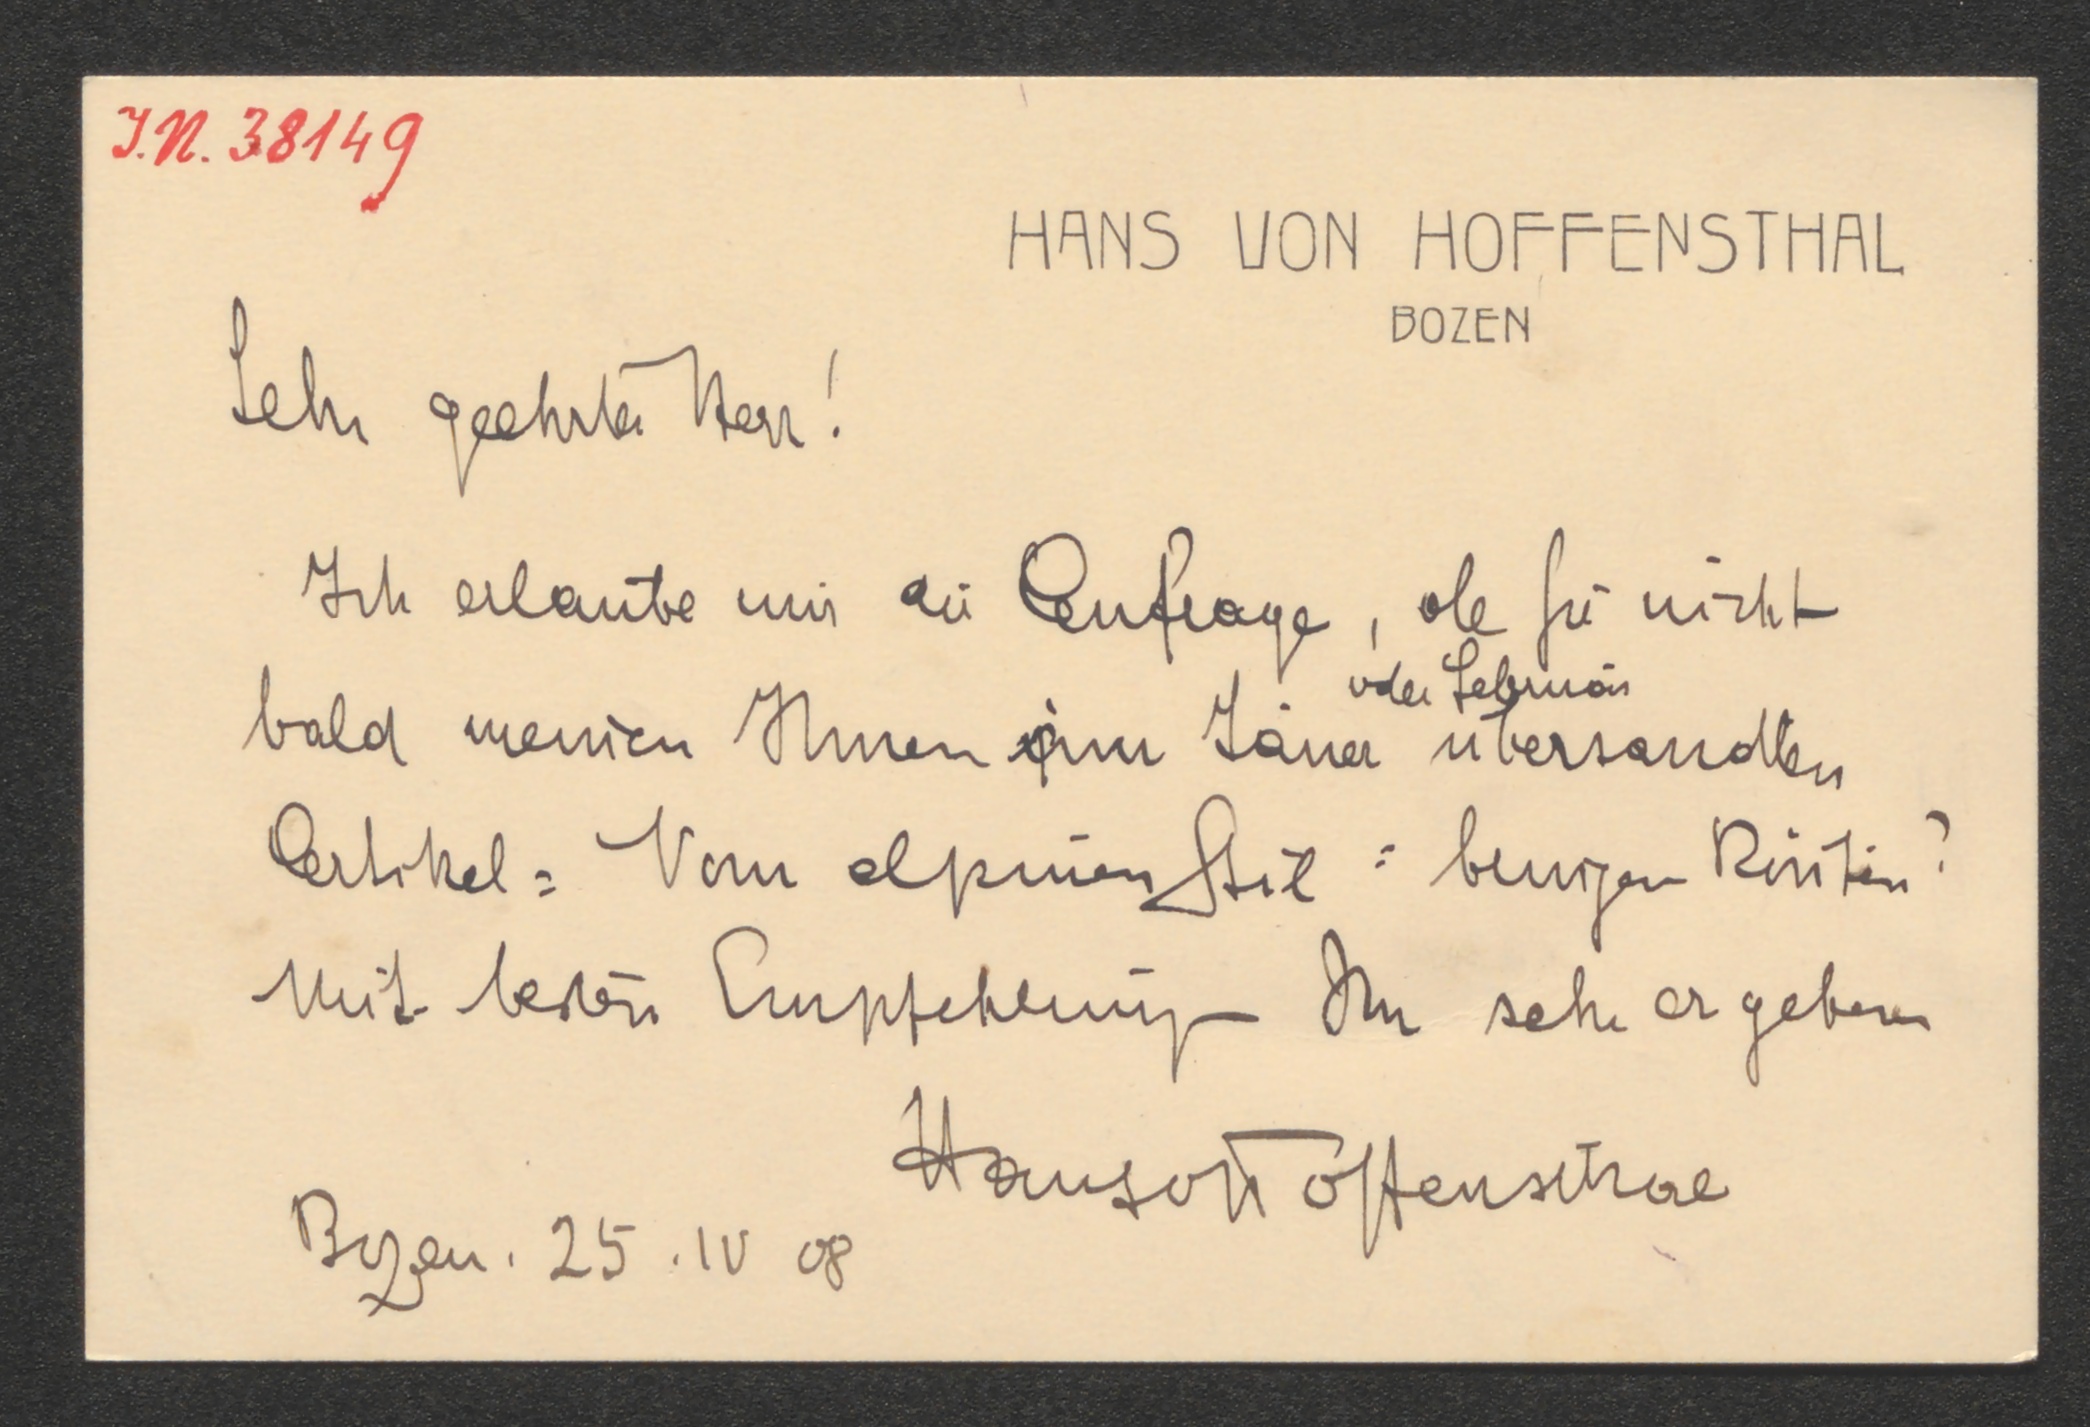 I.N. 38149
HANS VON HOFFENSTHAL
BOZEN
Sehr geehrter Herr!
Ich erlaube mir die Anfrage, ob Sie nicht
oder Februar
bald meinen Ihnen im Jäner übersandten
Artikel: Vom alpinen Stil: bringen
Mit besten Empfehlungen Ihr sehr ergebener
Hans von Hoffensthal
Bozen. 25. IV 08